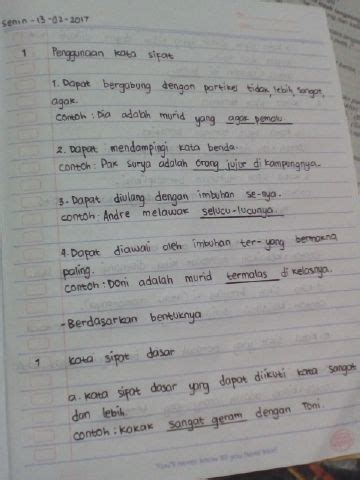 Senin -13-02-2017
1 Penggunaan kata sifat
1. Dapat bergabung dengan partikel tidak, lebih, sangat,
agak.
Contoh : Dia adalah murid yang agak pemalu.
2. Dapat mendampingi kata benda.
contoh : Pak Surya adalah orang jujur di kampungnya.
3. Dapat diulang dengan imbuhan se-nya.
contoh : Andre melawak selucu-lucunya.
4. Dapat diawali oleh imbuhan ter- yang bermakna
paling.
contoh : Doni adalah murid termalas di kelasnya.
- Berdasarkan bentuknya
1 kata sifat dasar
a. kata sifat dasar yang dapat diikuti kata sangat
dan lebih.
contoh : kakak sangat geram dengan Toni.